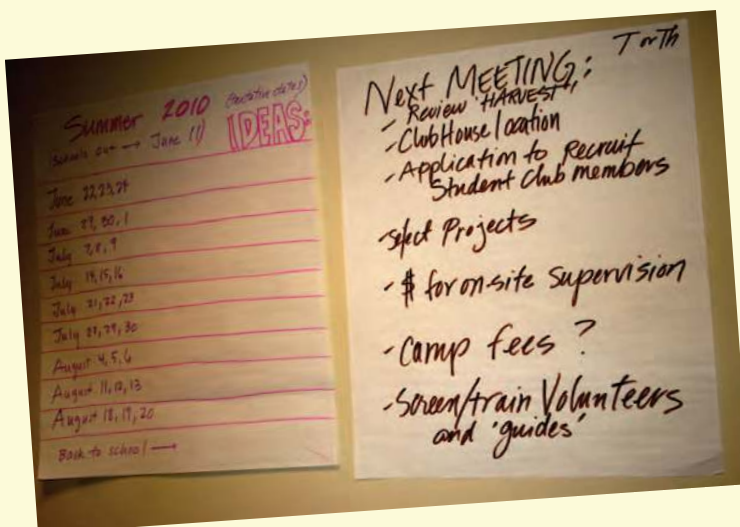 Summer 2010 (tentative dates)
(schools out → June 11) IDEAS:
June 22,23,24
June 29, 30, 1
July 7, 8, 9
July 14, 15, 16
July 21, 22, 23
July 28, 29, 30
August 4, 5, 6
August 11, 12, 13
August 18, 19, 20
Back to school →
T or Th
Next MEETING:
- Review "HARVEST"
- ClubHouse location
- Application to Recruit
Student Club members
- select Projects
- $ for on-site Supervision
- Camp fees ?
- Screen/train Volunteers
and 'guides'